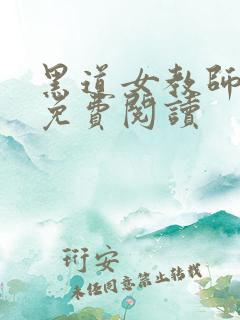 黑道女教師
免費閱讀
衍安
未经同意禁止转载